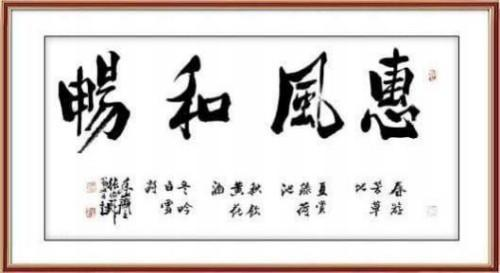 惠風和暢
春游
芳草
地
夏赏
綠荷
池
秋飲
黄花
酒
冬吟
白雪
詩